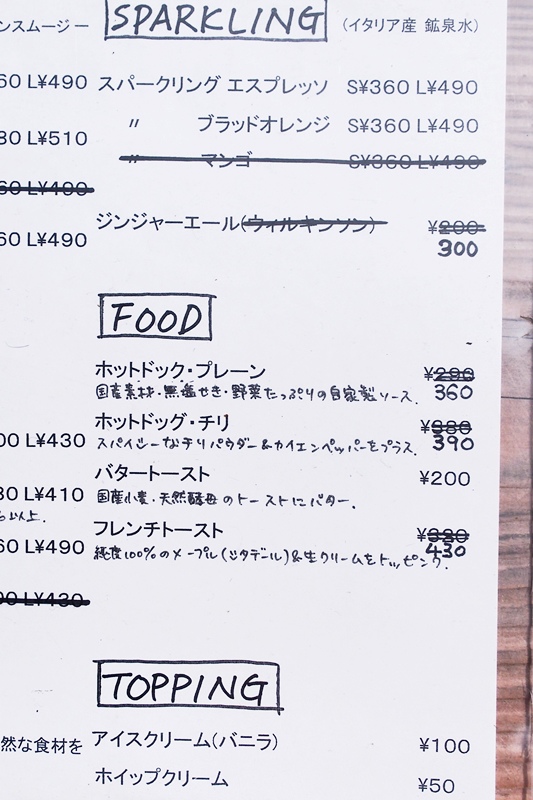 ンスムージー
60 L¥490
80 L¥510
60 L¥490
60 L¥490
00 L¥430
80 L¥410
以上.
60 L¥490
00 L¥430
然な食材を
SPARKLING (イタリア産 鉱泉水)
スパークリング エスプレッソ S¥360 L¥490
〃 ブラッドオレンジ S¥360 L¥490
〃 マンゴ S¥360 L¥490
ジンジャーエール(ウィルキンソン) ¥200
300
FOOD
ホットドック・プレーン ¥290
国産素材・無塩せき・野菜たっぷりの自家製ソース. 360
ホットドッグ・チリ ¥380
スパイシーなチリパウダー&カイエンペッパーをプラス. 390
バタートースト ¥200
国産小麦・天然酵母のトーストにバター.
フレンチトースト ¥380
430
純度100%のメープル(シタデール)&生クリームをトッピング.
TOPPING
アイスクリーム(バニラ) ¥100
ホイップクリーム ¥50